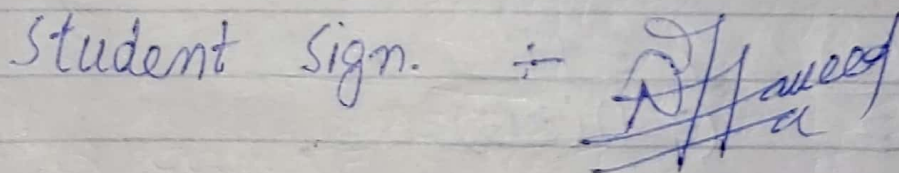 Student Sign. ÷